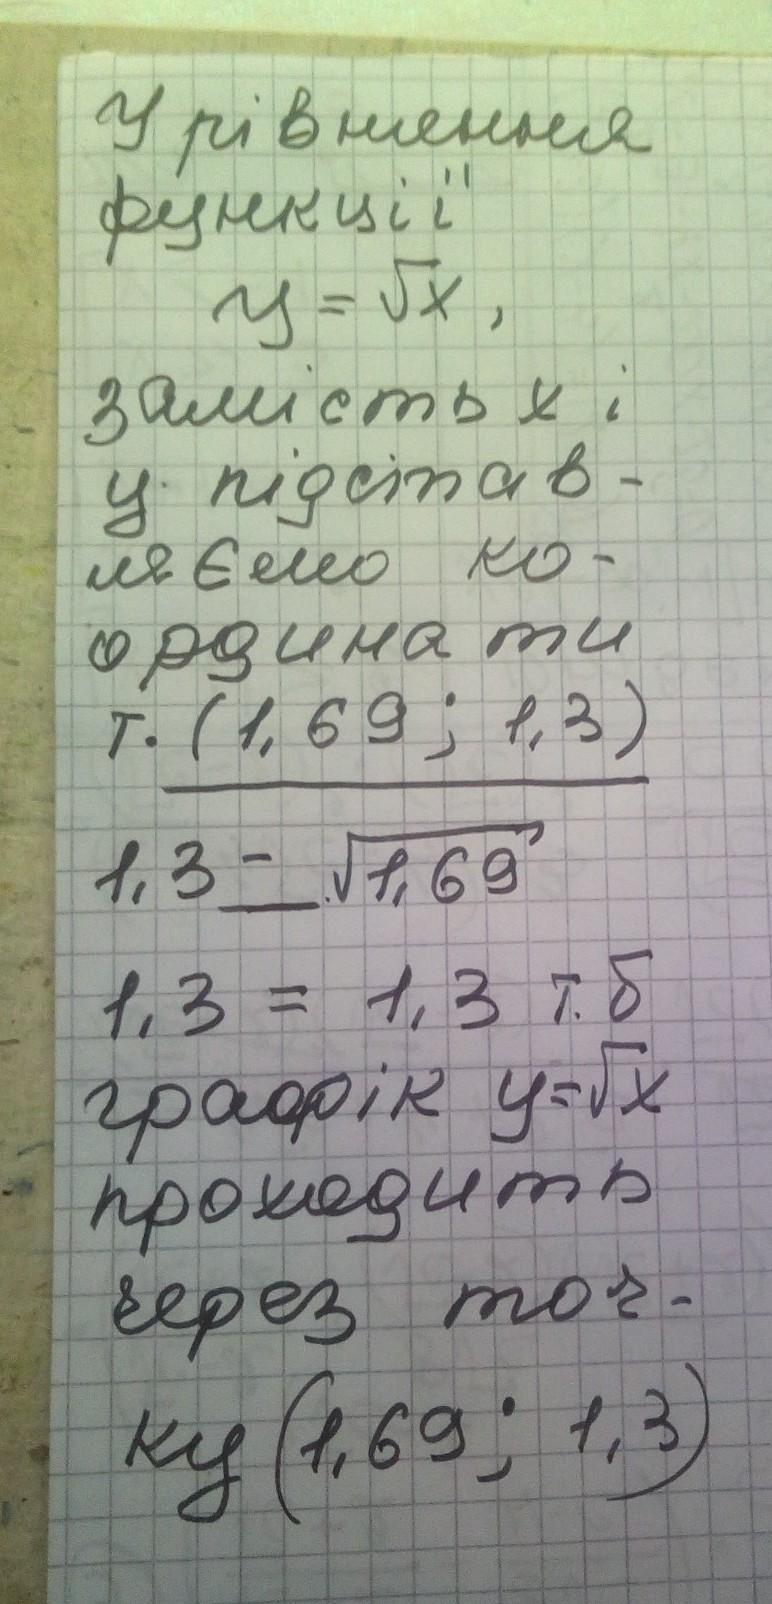 У рівняння
функції
y = √x,
замість x і
y підстав-
ляємо ко-
ординати
т. (1,69; 1,3)
1,3 = √1,69
1,3 = 1,3 т.б
графік y=√x
проходить
через точ-
ку (1,69; 1,3)